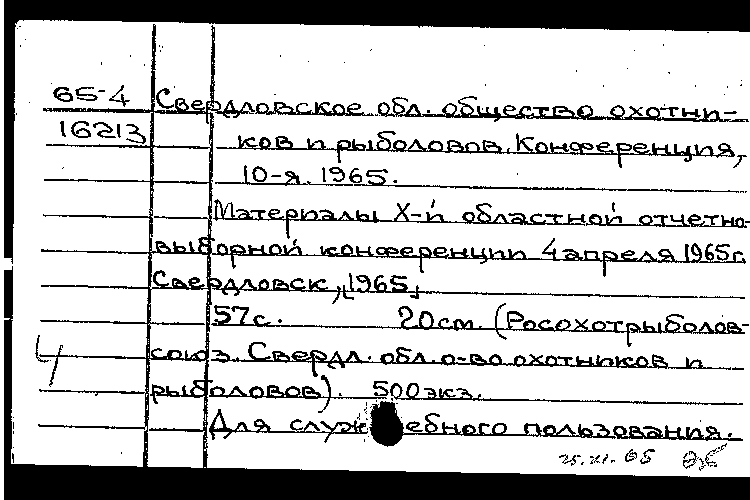 65-4 Свердловское обл. общество охотни-
16213 ков и рыболовов. Конференция,
10-я. 1965.
Материалы X-й областной отчетно-
выборной конференции 4 апреля 1965г.
Свердловск, [1965]
57с. 20см. (Росохотрыболов-
союз. Свердл. обл. о-во охотников и
рыболовов). 500экз.
Для служебного пользования.